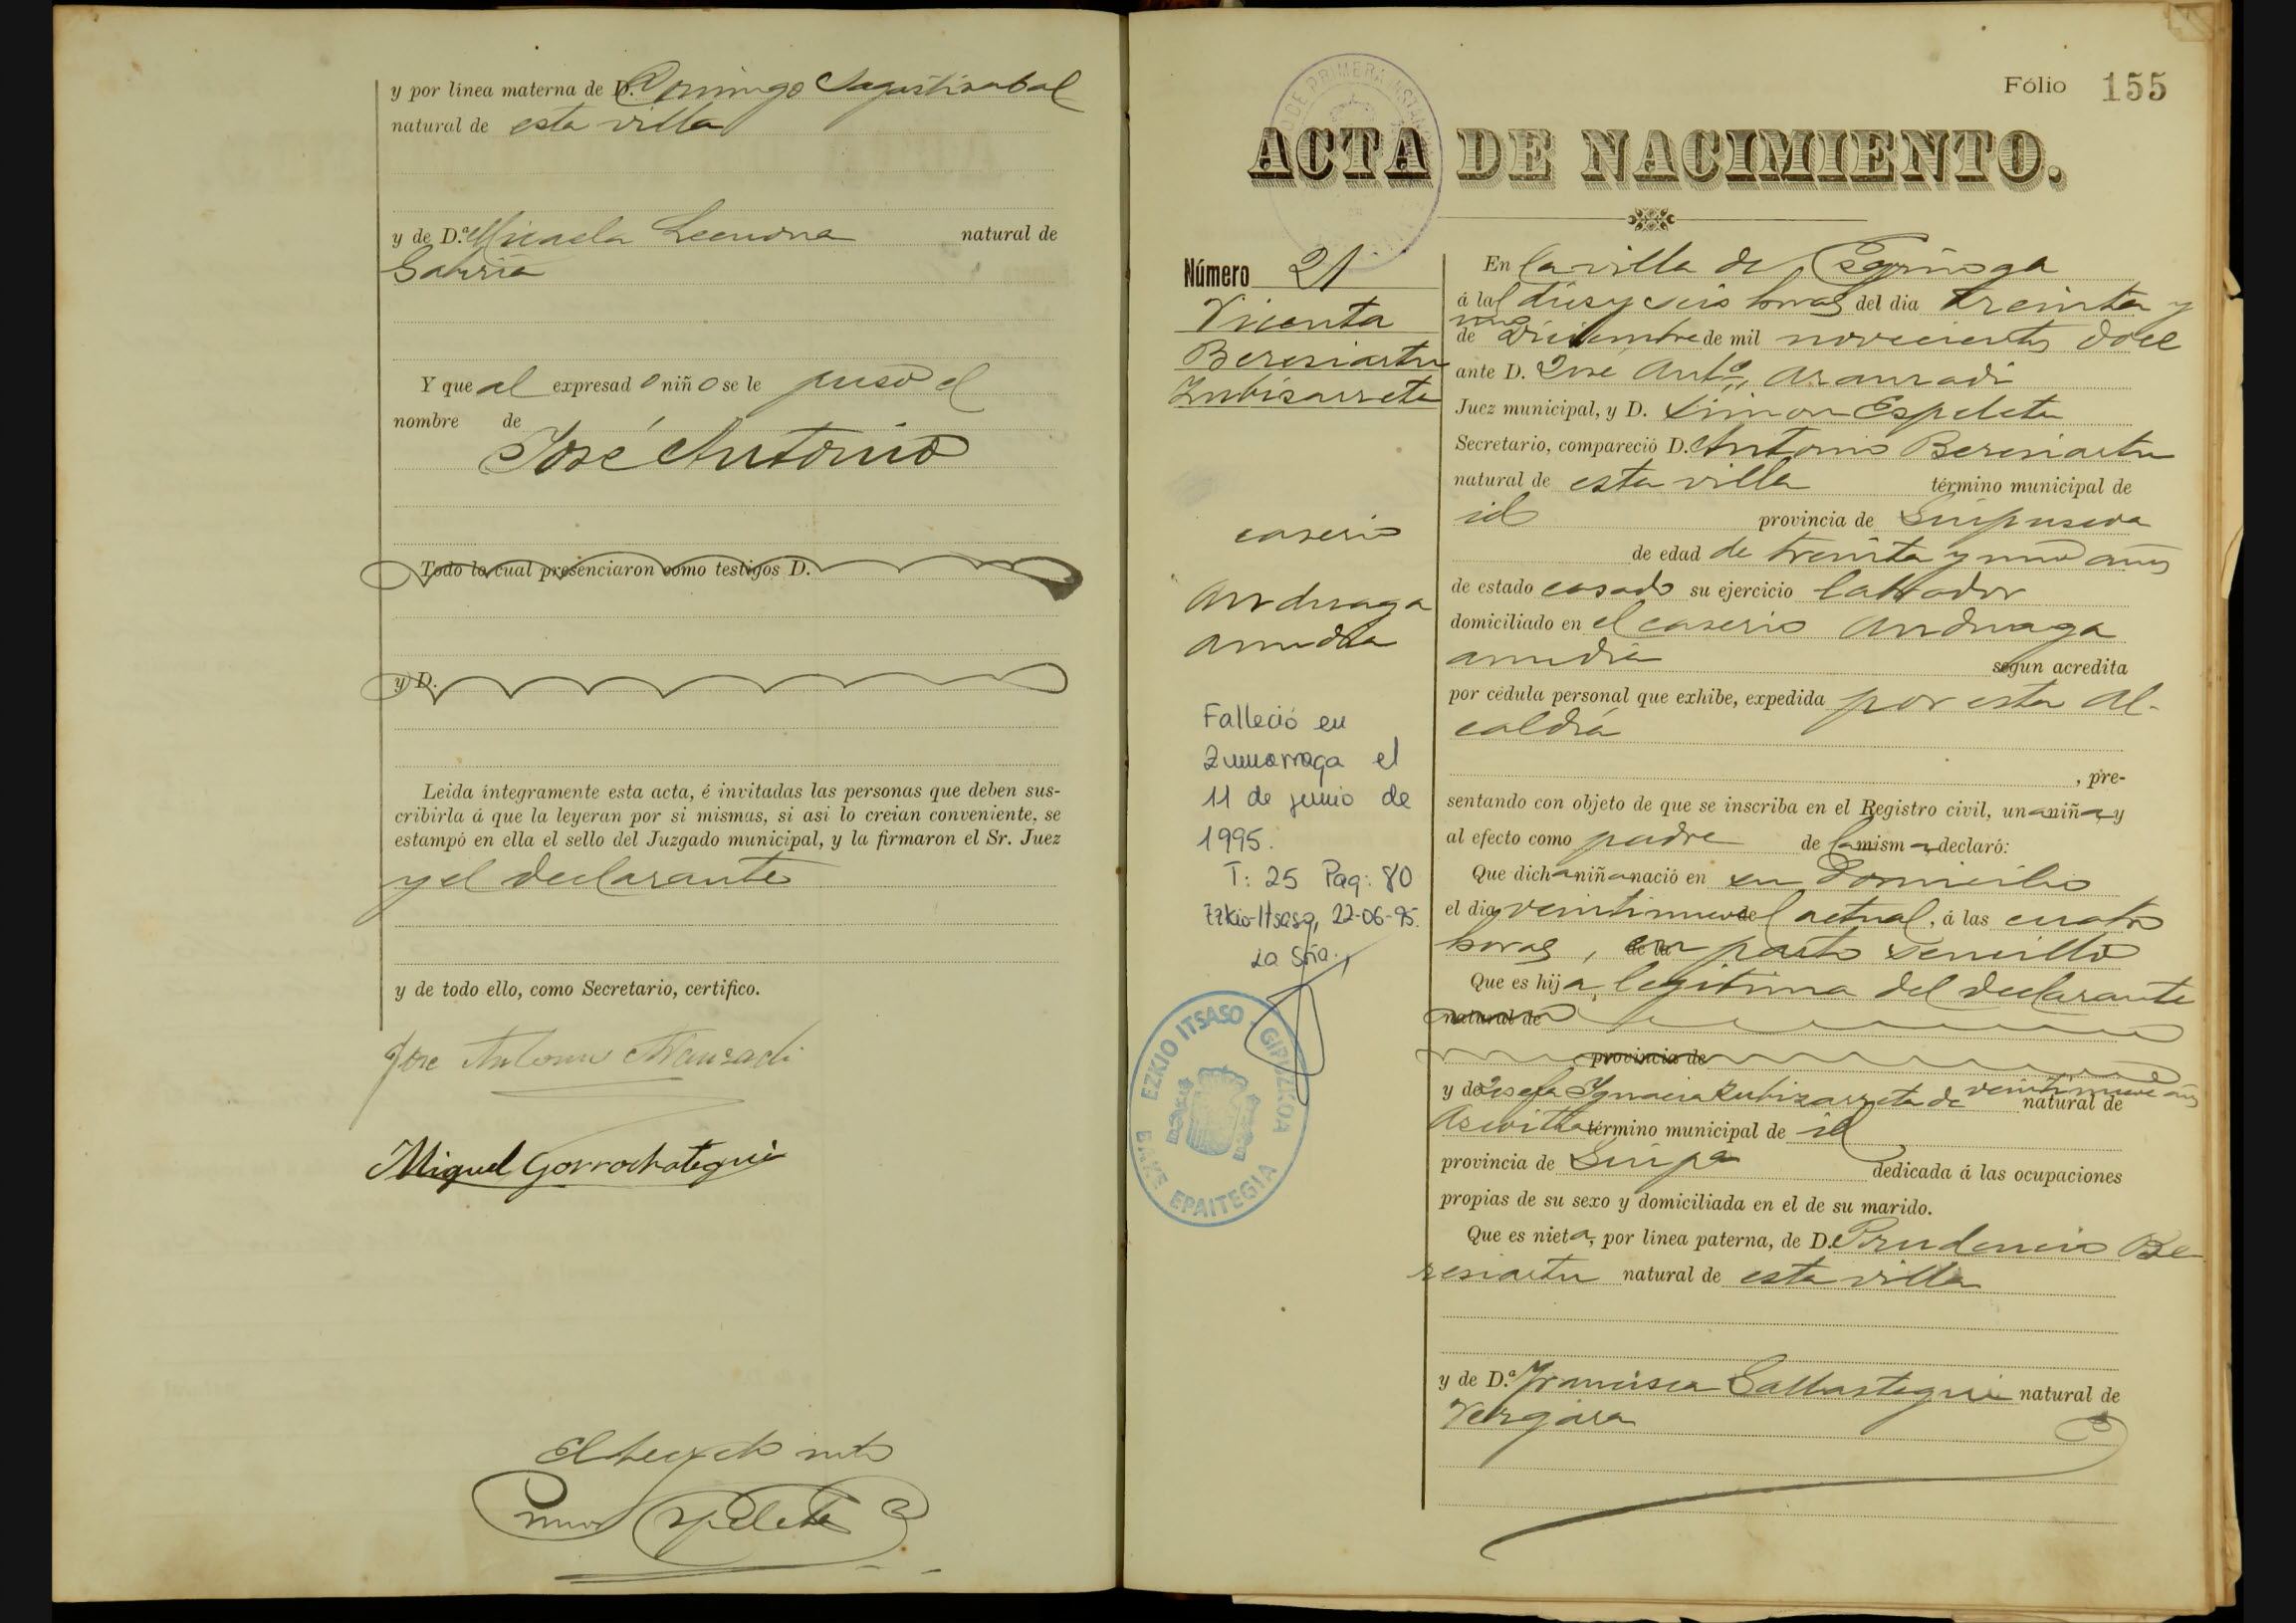 y por línea materna de D. Domingo Sagastizabal
natural de esta villa
y de D.ª Micaela Lecuona natural de
Gabiria
Y que al expresado niño se le puso el
nombre de
José Antonio
Todo lo cual presenciaron como testigos D.
y D.
Leida íntegramente esta acta, é invitadas las personas que deben sus-
cribirla á que la leyeran por si mismas, si asi lo creian conveniente, se
estampó en ella el sello del Juzgado municipal, y la firmaron el Sr. Juez
y el declarante
y de todo ello, como Secretario, certifico.
Jose Antonio Aranzadi
Miguel Gorrochategui
El
Simon Espeleta
Fólio 155
ACTA DE NACIMIENTO.
Número 21
Vicenta
Beresiartu
Zubizarreta
caserio
Anduaga
Falleció en
Zumarraga el
11 de junio de
1995.
T: 25 Pag: 80
Ezkio-Itsaso, 22-06-95.
La Sria.
EZKIO ITSASO GIPUZKOA
BAKE EPAITEGIA
En la villa de Ezquioga
á las diez y seis horas del dia treinta y
uno
de Diciembre de mil novecientos doce
ante D. José Antº Aranzadi
Juez municipal, y D. Simon Espeleta
Secretario, compareció D. Antonio Beresiartu
natural de esta villa término municipal de
id provincia de Guipuzcoa
de edad de treinta y uno años
de estado casado su ejercicio labrador
domiciliado en el caserio Anduaga
segun acredita
por cédula personal que exhibe, expedida por esta Al-
caldía
, pre-
sentando con objeto de que se inscriba en el Registro civil, una niña y
al efecto como padre de la misma declaró:
Que dicha niña nació en su domicilio
el dia veintinueve del actual, á las cuatro
horas, en parto sencillo
Que es hija legitima del declarante
natural de
provincia de
y de Josefa Ignacia Zubizarreta de veintinueve años natural de
Ascoitia término municipal de id
provincia de Guipª dedicada á las ocupaciones
propias de su sexo y domiciliada en el de su marido.
Que es nieta, por línea paterna, de D. Prudencio Be
resiartu natural de esta villa
y de D.ª Francisca Gallastegui natural de
Vergara